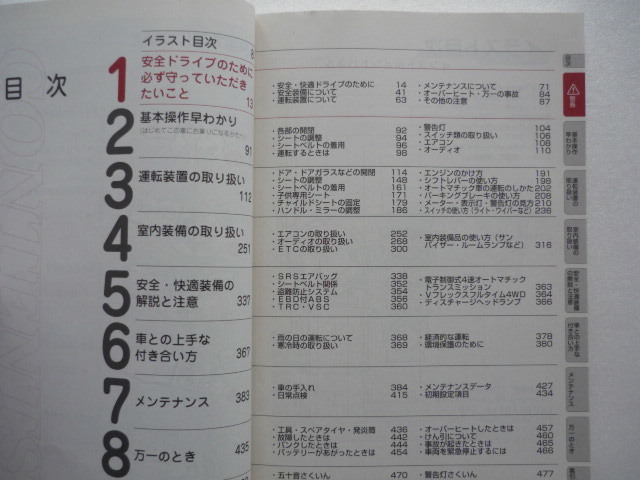 目次
イラスト目次 8
1 安全ドライブのために
必ず守っていただき
たいこと 13
・安全・快適ドライブのために 14
・安全装備について 41
・運転装置について 63
・メンテナンスについて 71
・オーバーヒート・万一の事故 84
・その他の注意 87
2 基本操作早わかり
(はじめてこの車にお乗りになるかたへ)
91
・各部の開閉 92
・シートの調整 94
・シートベルトの着用 96
・運転するときは 98
・警告灯 104
・スイッチ類の取り扱い 106
・エアコン 108
・オーディオ 110
3 運転装置の取り扱い
112
・ドア・ドアガラスなどの開閉 114
・シートの調整 148
・シートベルトの着用 161
・子供専用シート 171
・チャイルドシートの固定 179
・ハンドル・ミラーの調整 186
・エンジンのかけ方 191
・シフトレバーの使い方 198
・オートマチック車の運転のしかた 202
・パーキングブレーキの使い方 208
・メーター・表示灯・警告灯の見方 210
・スイッチの使い方(ライト・ワイパーなど) 236
4 室内装備の取り扱い
251
・エアコンの取り扱い 252
・オーディオの取り扱い 268
・ETCの取り扱い 300
・室内装備品の使い方(サン
バイザー・ルームランプなど) 316
5 安全・快適装備の
解説と注意 337
・SRSエアバッグ 338
・シートベルト関係 352
・盗難防止システム 354
・EBD付ABS 356
・TRC・VSC 360
・電子制御式4速オートマチック
トランスミッション 363
・Vフレックスフルタイム4WD 364
・ディスチャージヘッドランプ 366
6 車との上手な
付き合い方 367
・雨の日の運転について 368
・寒冷時の取り扱い 369
・経済的な運転 378
・環境保護のために 380
7 メンテナンス 383
・車の手入れ 384
・日常点検 415
・メンテナンスデータ 427
・初期設定項目 434
8 万一のとき 435
・工具・スペアタイヤ・発炎筒 436
・故障したときは 442
・パンクしたときは 444
・バッテリーがあがったときは 454
・オーバーヒートしたときは 457
・けん引について 460
・事故が起きたときは 465
・車両を緊急停止するには 466
・五十音さくいん 470
・警告灯さくいん 477
目次
警告
基本操作
早わかり
運転装置の
取り扱い
室内装備の
取り扱い
安全・快適装備
の解説と注意
車との上手な
付き合い方
メンテナンス
万一のとき